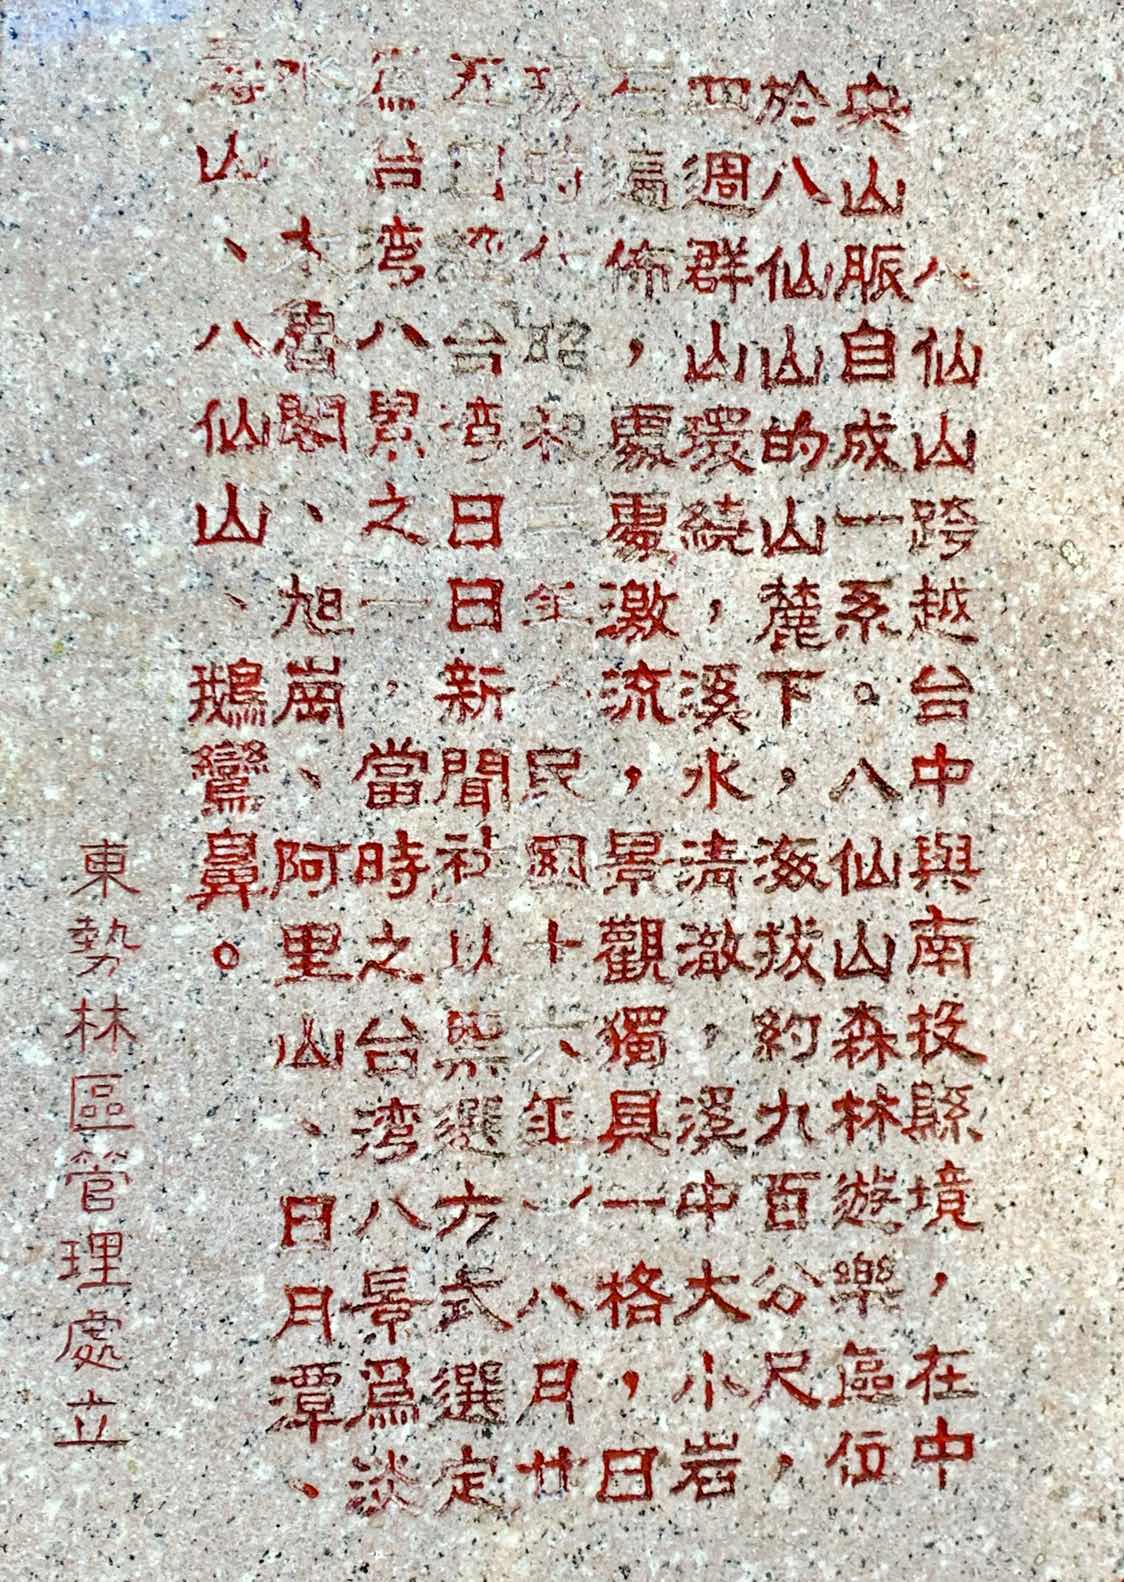 八仙山跨越台中與南投縣境，在中
央山脈自成一系。八仙山森林遊樂區位
於八仙山的山麓下，海拔約九百公尺，
四週群山環繞，溪水清澈，溪中大小岩
石遍佈，處處激流，景觀獨具一格，日
據時代昭和二年︵民國十六年︶八月廿
五日經台湾日日新聞社以票選方式選定
為台湾八景之一，當時之台湾八景爲淡
水、太魯閣、旭崗、阿里山、日月潭、
壽山、八仙山、鵝鑾鼻。
東勢林區管理處立